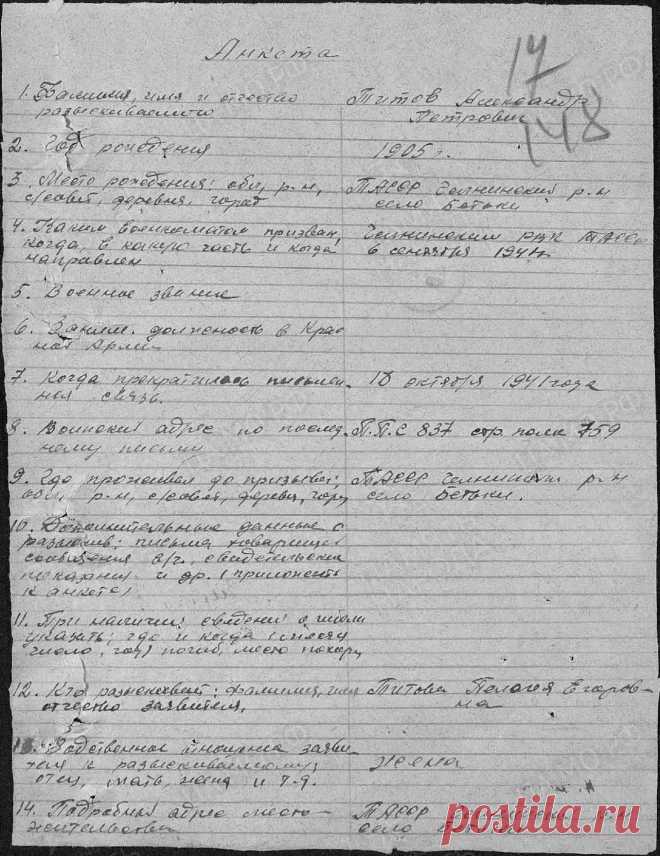 Анкета
14
148
1. Фамилия, имя и отчество Титов Александр
разыскиваемого Петрович
2. Год рождения 1905 г.
3. Место рождения: обл, р-н, ТАССР Челнинский р-н
с/совет, деревня, город село Бетьки
4. Каким военкоматом призван, Челнинским РВК ТАССР
когда, в какую часть и когда 6 сентября 1941 г.
направлен
5. Военное звание
6. Заним. должность в Крас
ной Армии
7. Когда прекратилась письмен- 18 октября 1941 года
ная связь.
8. Воинский адрес по послед- П.П.С 837 стр. полк 759
нему письму
9. Где проживал до призыва: ТАССР Челнинский р-н
обл, р-н, с/совет, деревн, город село Бетьки.
10. Дополнительные данные о
разыскив: письма товарищей
сообщения в/ч, свидетельские
показания и др. (приложить
к анкете)
11. При наличии сведений о гибели
указать; где и когда (месяц
число, год) погиб, место похор,
12. Кто разыскивает: фамилия, имя Титова Пелагея Егоров-
отчество заявителя, на
13. Родственное отношение заяви-
теля к разыскиваемому жена
отец, мать, жена и т.д.
14. Подробный адрес место- ТАССР
жительства село
postila.ru